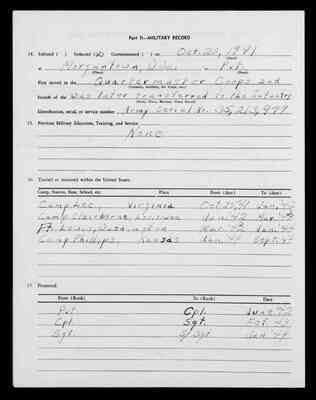 Part II—MILITARY RECORD
14. Enlisted ( ) Inducted (x) Commissioned ( ) on Oct. 20, 1941
(Date)
at Morgantown, W.Va. as Pvt.
(Place) (Rank)
First served in the Quartermaster Corps and
branch of the was later transferred to the Infantry
Identification, serial, or service number Army Serial No.
15. Previous Military Education, Training, and Service
None
16. Trained or stationed within the United States.
Camp, Station, Base, School, etc. Place From (date) To (date)
Camp Lee, Virginia Oct. 21, 41 Jan. 42
Camp Claiborne, Louisiana Jan. 42 Mar. 43
Ft. Lewis, Washington Mar. 43 Jan. 44
Camp Phillips, Kansas Jan. 44 Sept. 44
17. Promoted:
From (Rank) To (Rank) Date
Pvt. Cpl. June 42
Cpl. Sgt. 43
Sgt. S/Sgt. Jan. 44